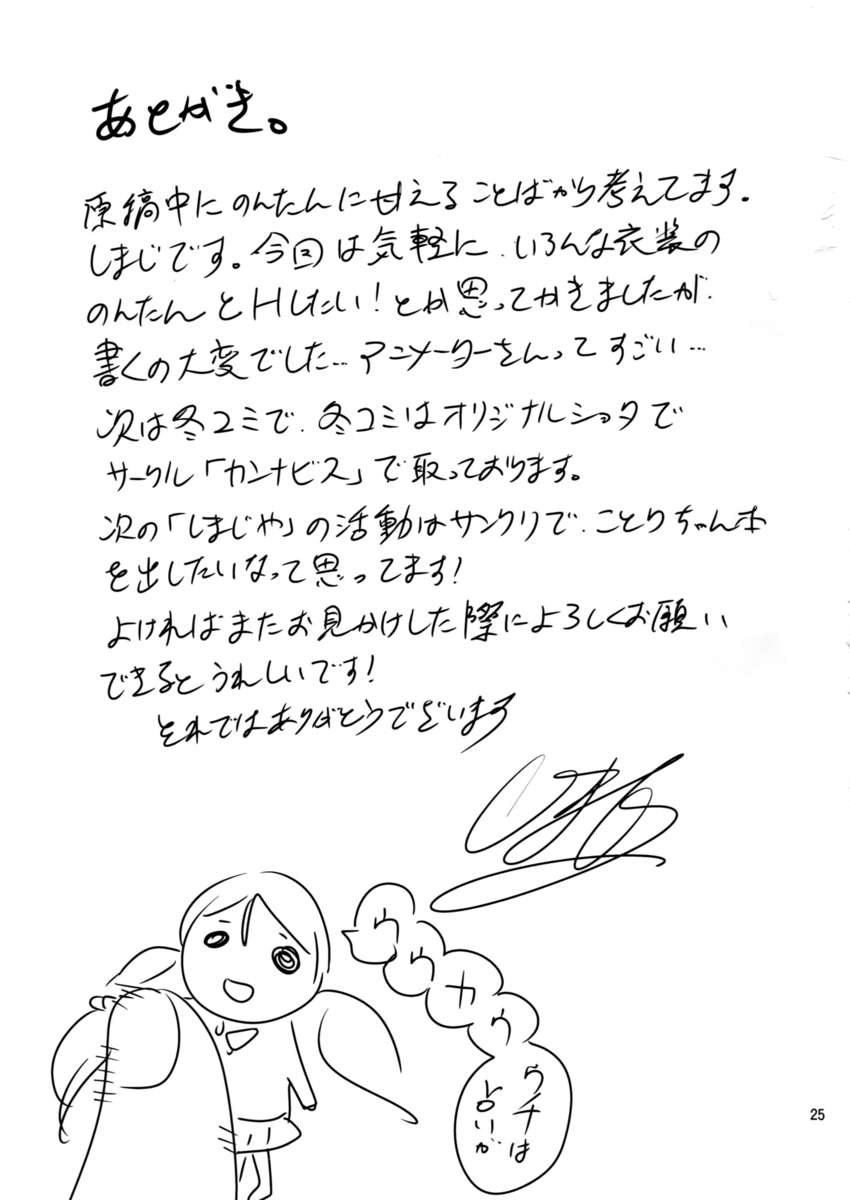 あとがき。
原稿中にのんたんに甘えることばかり考えてます。
しまじです。今回は気軽に、いろんな衣装の
のんたんとHしたい!とか思ってかきましたが、
書くの大変でした…アニメーターさんってすごい…
次は冬コミで、冬コミはオリジナルショタで
サークル「カンナビス」で取っております。
次の「しまじや」の活動はサンクリで、ことりちゃん本
を出したいなって思ってます!
よければまたお見かけした際によろしくお願い
できるとうれしいです!
それではありがとうございます
ウウカウ
ウチは
占いが
25